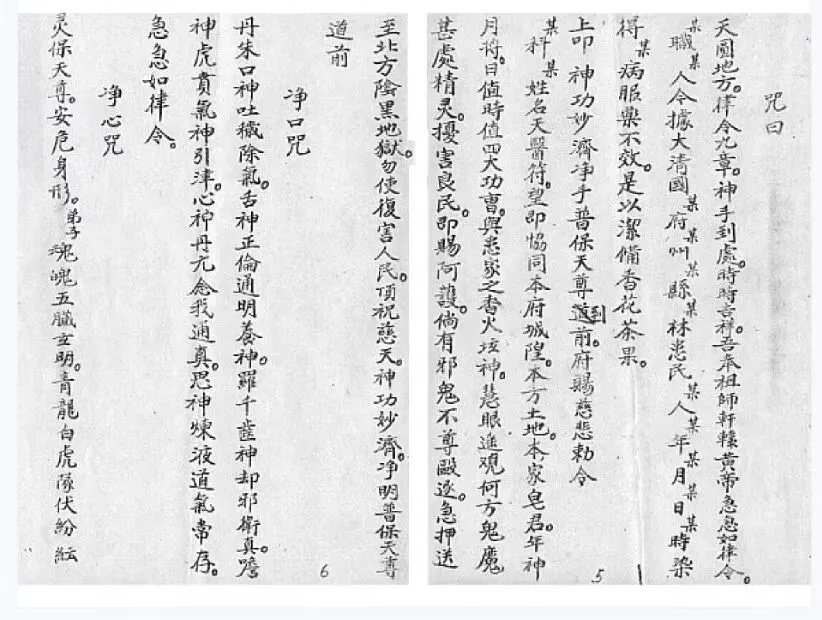 咒曰
天圓地方。律令九章。神手到處。時時吉祥。吾奉祖師軒轅黃帝急急如律令。
某職某人令據大清國某府某州某縣某林患民某人某年某月某日某時染
得某病服藥不效。是以潔備香花茶果。
上叩神功妙濟净手普保天尊道前。到府賜慈悲勅令
某科某姓名天醫符望即協同本府城隍。本方土地。本家皂君。年神
月将。日值時值四大功曹。與患家之香火垓神。慧眼進观何方鬼魔
甚處精灵。擾害良民。即賜呵護。倘有邪鬼不尊毆逐。急押送
5
至北方陰黑地獄。勿使復害人民。頂祝慈天。神功妙濟。净明普保天尊
道前
净口咒
丹朱口神吐穢除氣。舌神正倫通明養神。羅千齒神却邪衛真。
神虎賁氣神引津。心神丹元念我通真。思神煉液道氣常存。
急急如律令。
净心咒
灵保天尊。安危身形。弟子魂魄五臟玄明。青龍白虎隊伏紛紜
6